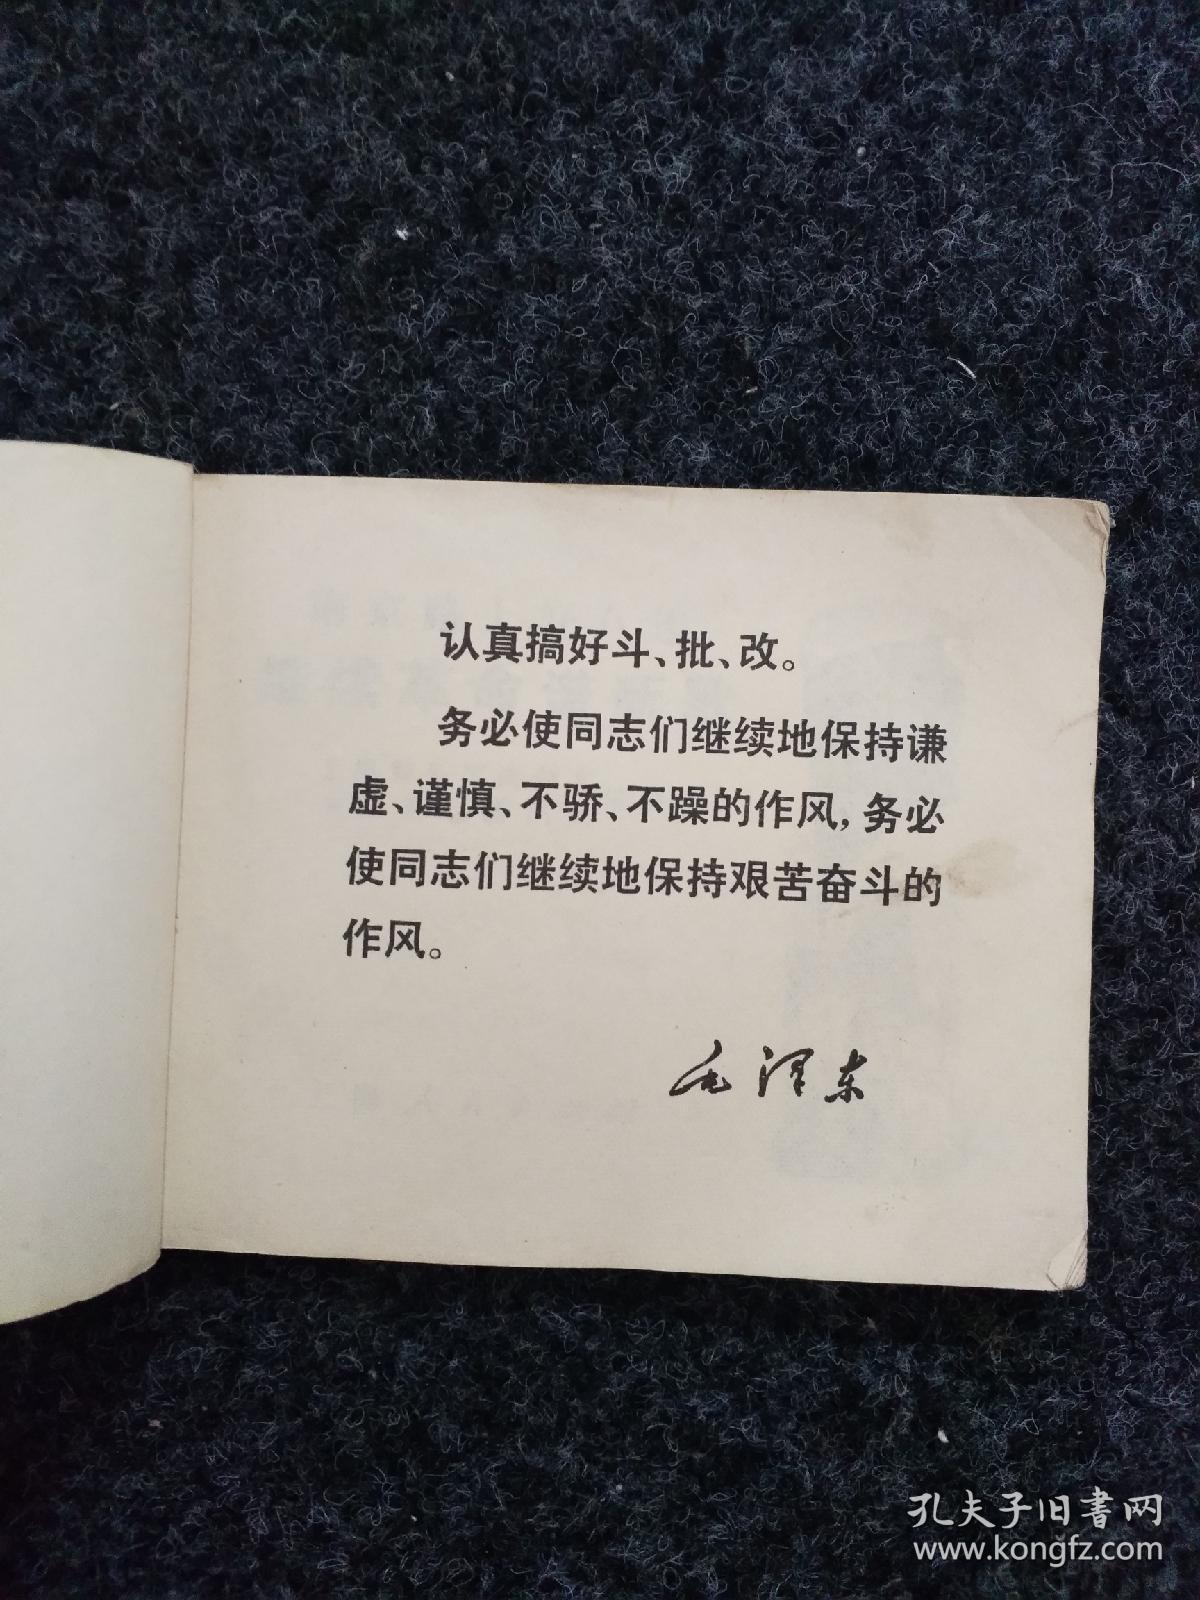 认真搞好斗、批、改。
务必使同志们继续地保持谦
虚、谨慎、不骄、不躁的作风，务必
使同志们继续地保持艰苦奋斗的
作风。
毛泽东
孔夫子旧書网
www.kongfz.com